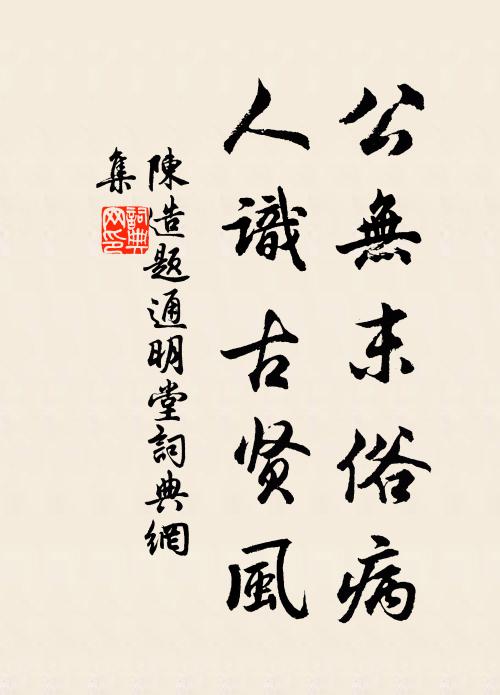 公無末俗病
人識古贤風
陳造題通明堂詞典網
集
詞典
网印